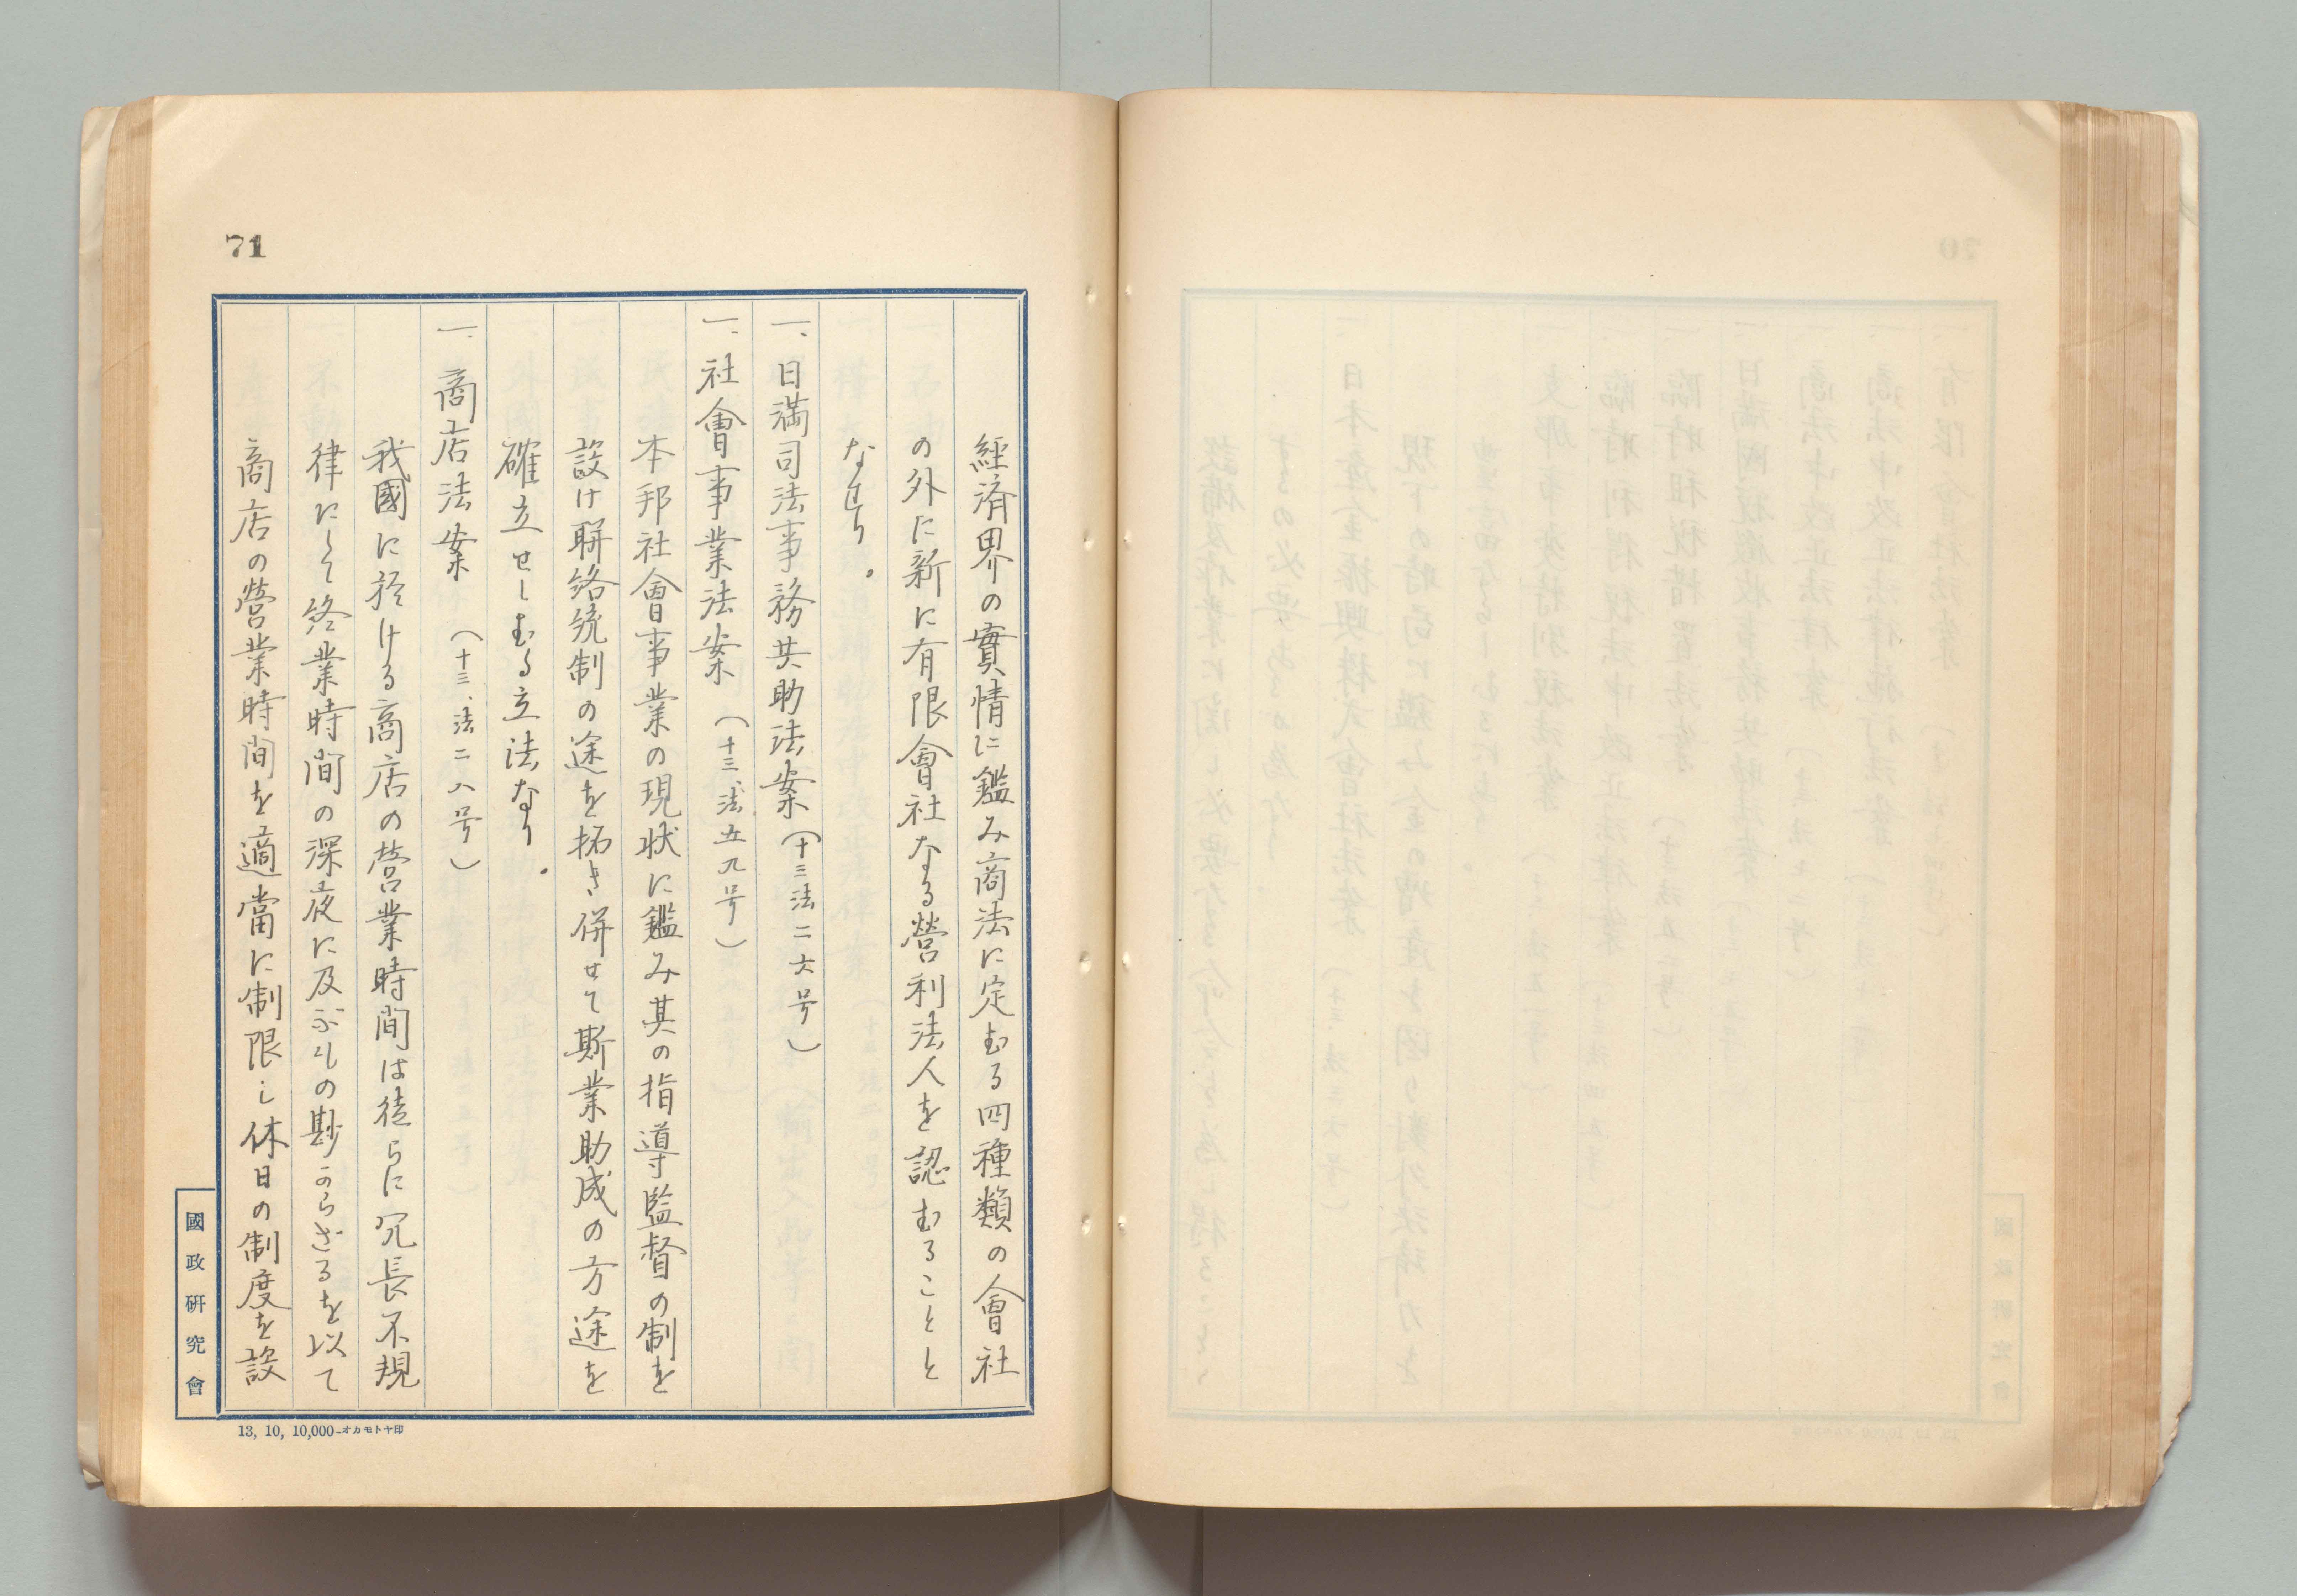 71
經済界の實情に鑑み商法に定むる四種類の會社
の外に新に有限會社なる營利法人を認むることと
なせり。
一、日満司法事務共助法案（十三法二六号）
一、社會事業法案（十三、法五九号）
本邦社會事業の現状に鑑み其の指導監督の制を
設け聯絡統制の途を拓き併せて斯業助成の方途を
確立せしむる立法なり。
一、商店法案（十三、法二八号）
我國に於ける商店の营業時間は徒らに冗長不規
律にして終業時間の深夜に及ぶもの尠からざるを以て
商店の営業時間を適當に制限し休日の制度を設
國政研究會
13, 10, 10,000-オカモトヤ印